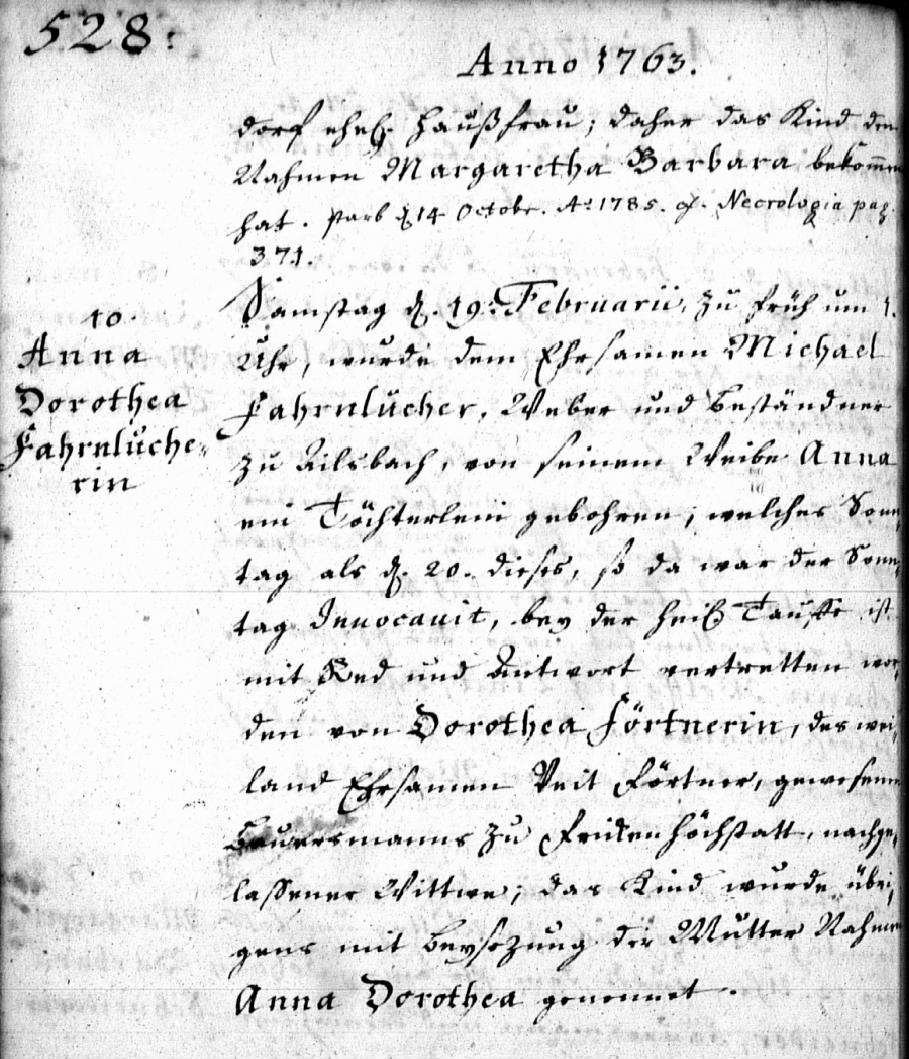 528.
Anno 1763.
dorf ehel. Haußfrau; daher das Kind den
Nahmen Margaretha Barbara bekom̅en
hat. starb d. 14 Octobr. Ao. 1785. cf. Necrologia pag.
371.
10.
Anna
Dorothea
Fahrnlüche-
rin
Samstag d. 19. Februarii, zu früh um 1.
Uhr, wurde dem Ehrsamen Michael
Fahrnlücher, Weber und Beständner
zu Ailsbach, von seinem Weibe Anna
ein Töchterlein gebohren; welches Sonn-
tag als d. 20. dieses, so da war der Sonn-
tag Invocavit, bey der heil. Tauffe ist
mit Red und Antwort vertretten wor-
den von Dorothea Förtnerin, des wei-
land Ehrsamen Veit Förtner, gewesenen
Bauersmanns zu Frickenhöchstatt, nachge-
lassener Wittwe; das Kind wurde übri-
gens mit Beysezung der Mutter Nahmen
Anna Dorothea genennet.